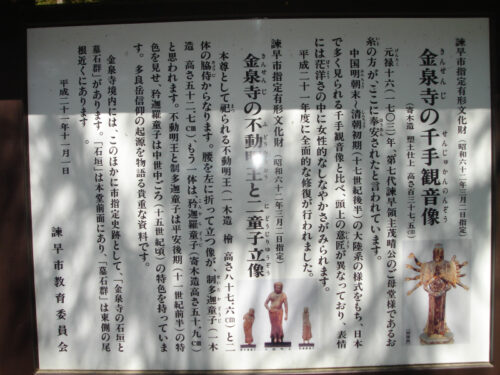 諫早市指定有形文化財(昭和六十二年三月二日指定)
金泉寺の千手観音像
きんせんじ せんじゅかんのんぞう
(寄木造 塑土仕上 高さ三十七・五㎝)
元禄十六(一七〇三)年、第七代諫早領主茂晴公のご母堂様であるお
糸の方が、ここに奉安されたと言われています。
中国明朝末~清朝初期(十七世紀後半)の大陸系の様式をもち、日本
で多く見られる千手観音像と比べ、頭上の意匠が異なっており、表情
には茫洋さの中に女性的なしなやかさがみられます。
平成二十一年度に全面的な修復が行われました。
諫早市指定有形文化財(昭和六十二年三月二日指定)
金泉寺の不動明王と二童子立像
本尊として祀られる不動明王(一木造 檜 高さ八十七・六㎝)と二
体の脇侍からなります。腰を左に折って立つ像が、制多迦童子(一木
造 高さ五十二・七㎝)、もう一体は矜迦羅童子(寄木造高さ五十・九㎝)
と思われます。不動明王と制多迦童子は平安後期(十一世紀前半)の特
色を見せ、矜迦羅童子は中世中ごろ(十五世紀頃)の特色を持っていま
す。多良岳信仰の起源を物語る貴重な資料です。
金泉寺境内には、このほかに市指定史跡として、「金泉寺の石垣と
墓石群」があります。「石垣」は本堂前面にあり、「墓石群」は東側の尾
根近くにあります。
平成二十一年十一月一日
諫早市教育委員会